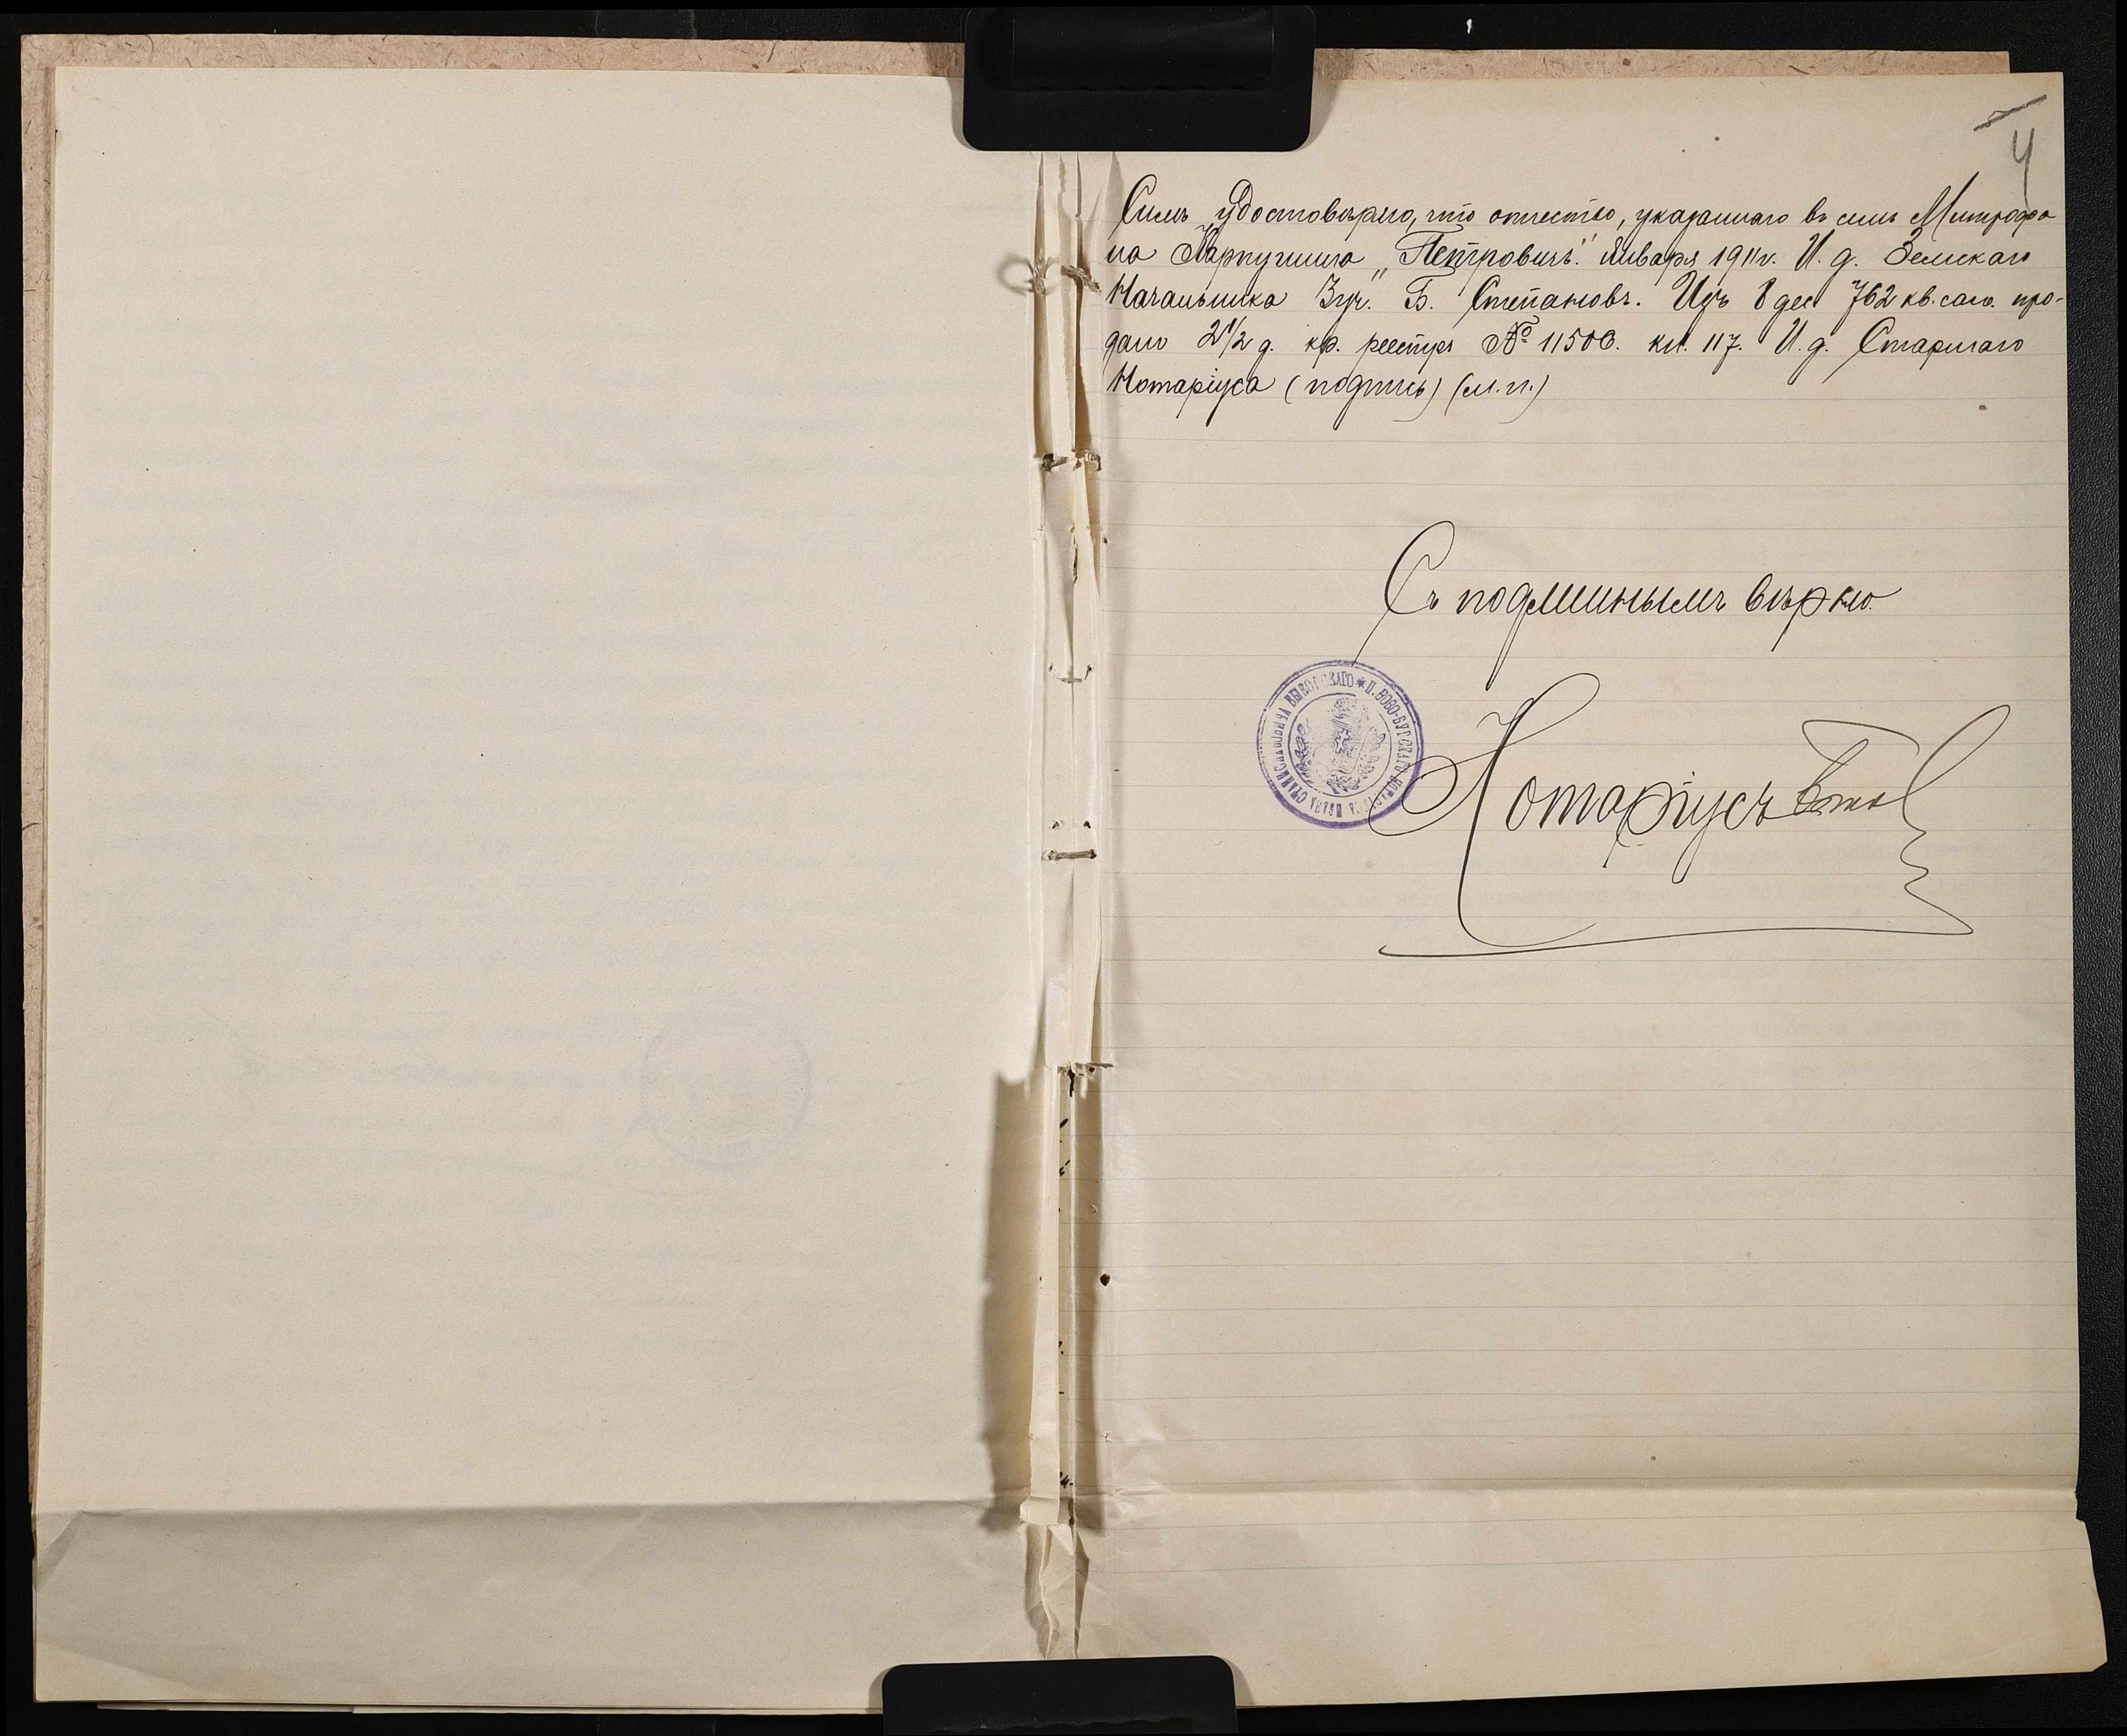 4
Симъ удостовѣряю, что отчество, указаннаго въ семъ Митрофа
на Карпушина „Петровичъ". Января 1911 г. И. д. Земскаго
Начальника 3 уч. Б. Степановъ. Изъ 8 дес. 762 кв. саж. про-
дано 2 1/2 д. кр. реестръ № 11506. кн. 117. И. д. Старшаго
Нотаріуса (подпись) (м. п.)
Съ подлиннымъ вѣрно.
П. НОВО-БУГСКАГО НОТАРІУСА ИВАНА СТАНИСЛАВОВИЧА
Нотаріусъ